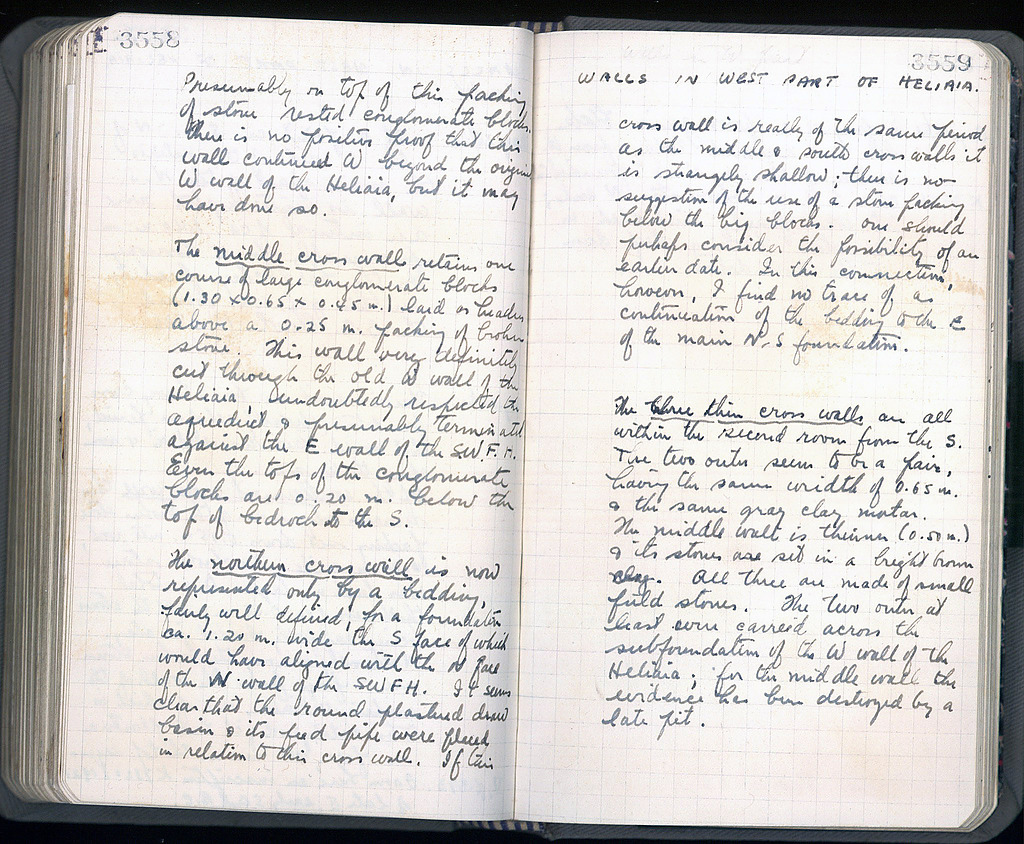 3558
Presumably on top of this packing
of stone rested conglomerate blocks.
There is no positive proof that this
wall continued W beyond the original
W wall of the Heliaia, but it may
have done so.
The middle cross wall retains one
course of large conglomerate blocks
(1.30 x 0.65 x 0.45 m.) laid as headers
above a 0.25 m. packing of broken
stone. This wall very definitely
cut through the old W wall of the
Heliaia, undoubtedly respected the
aqueduct & presumably terminated
against the E wall of the SW.F.H.
Even the tops of the conglomerate
blocks are 0.20 m. below the
top of bedrock to the S.
The northern cross wall is now
represented only by a bedding,
fairly well defined, for a foundation
ca. 1.20 m. wide the S face of which
would have aligned with the N face
of the N. wall of the SWFH. It seems
clear that the round plastered draw
basin & its feed pipe were placed
in relation to this cross wall. If this
3559
WALLS IN WEST PART OF HELIAIA.
cross wall is really of the same period
as the middle & south cross walls it
is strangely shallow; there is no
suggestion of the use of a stone packing
below the big blocks. One should
perhaps consider the possibility of an
earlier date. In this connection,
however, I find no trace of a
continuation of the bedding to the E
of the main N-S foundation.
The three thin cross walls are all
within the second room from the S.
The two outer seem to be a pair,
having the same width of 0.65 m.
& the same gray clay mortar.
The middle wall is thinner (0.50 m.)
& its stones are set in a bright brown
clay. All three are made of small
field stones. The two outer at
least were carried across the
subfoundation of the W wall of the
Heliaia; for the middle wall the
evidence has been destroyed by a
late pit.